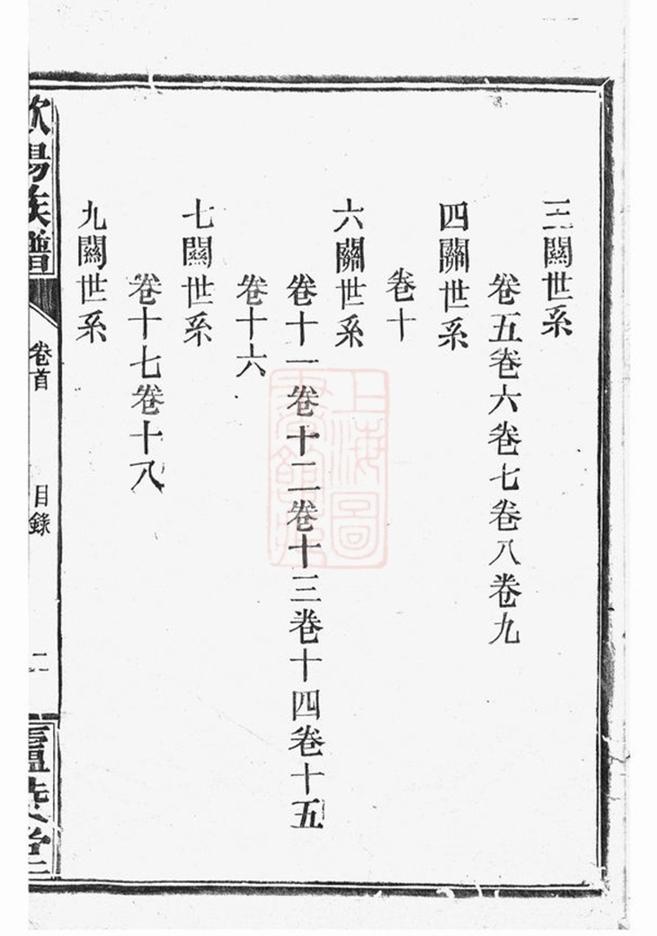 三關世系
卷五卷六卷七卷八卷九
四關世系
卷十
六關世系
卷十一卷十二卷十三卷十四卷十五
卷十六
七關世系
卷十七卷十八
九關世系
陽族譜
卷首
目錄
二
堂
上海圖
書館藏